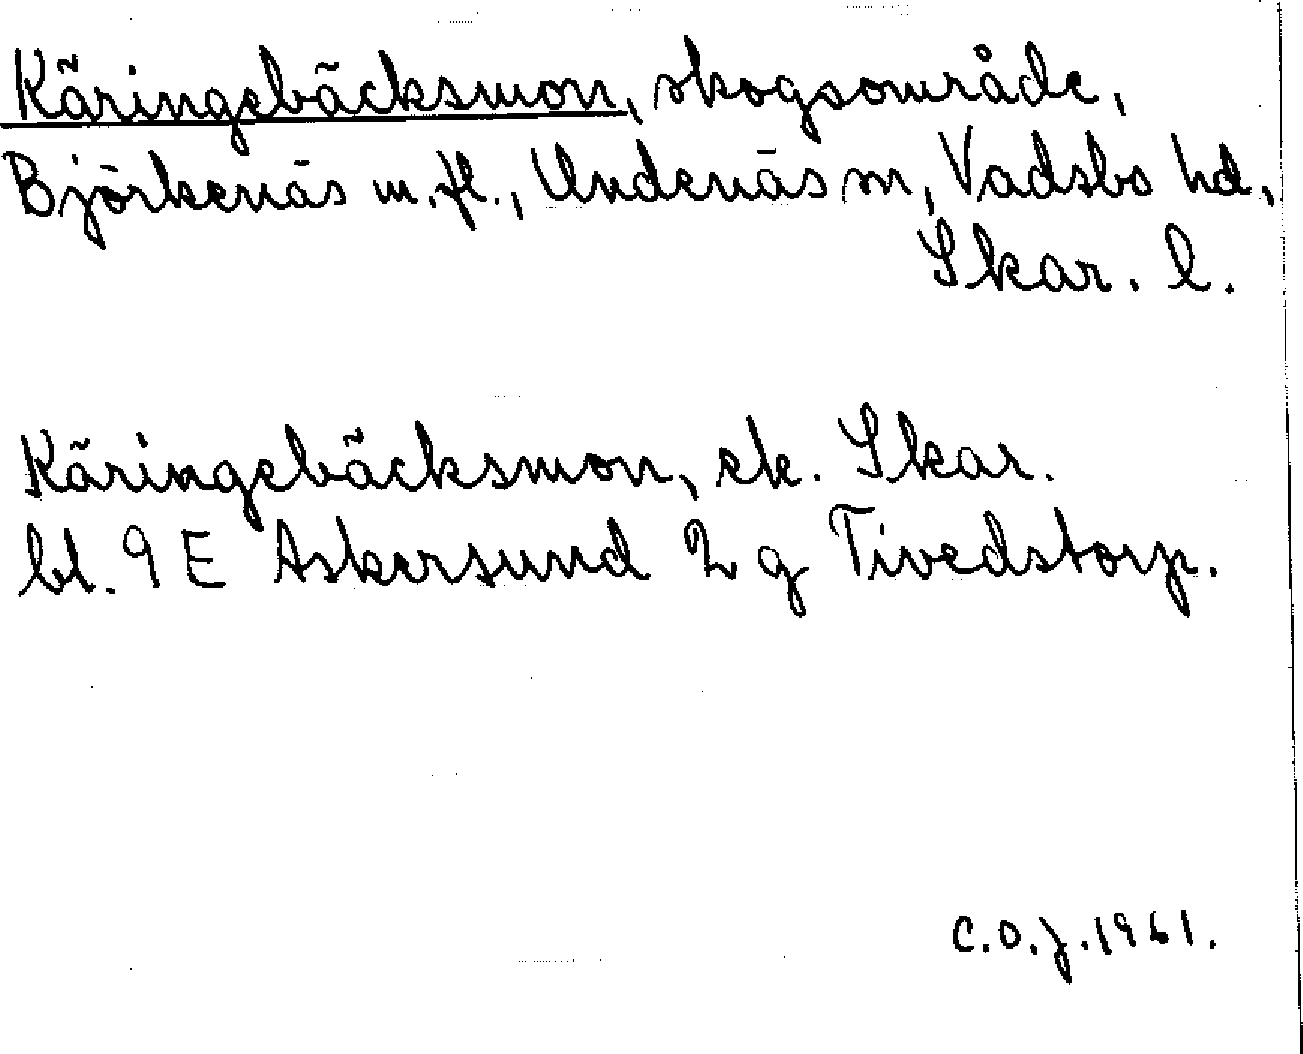 Käringebäcksmon, skogsområde,
Björkenäs m.fl., Undenäs sn, Vadsbo hd,
Skar. l.
Käringebäcksmon, ek. Skar.
bl. 9 E Askersund 2 g Tivedstorp.
C.O.J. 1961.